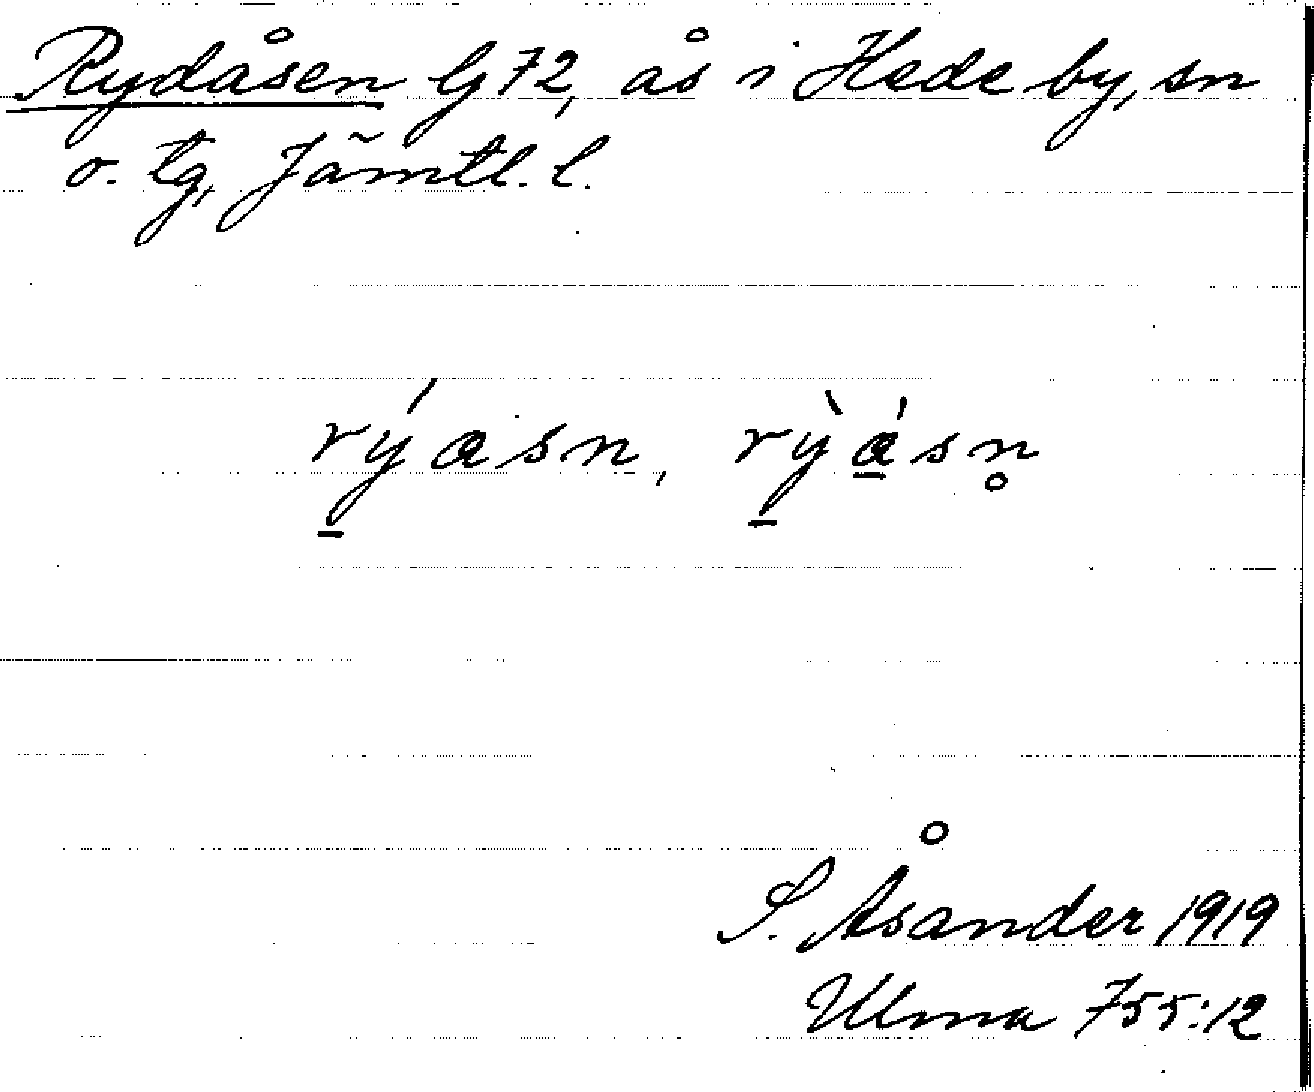 Rydåsen G 72, ås i Hede by, sn
o. tg, Jämtl. l.
rýasn, rỳa̱̍sn̥
S. Åsander 1919
Ulma 755:12